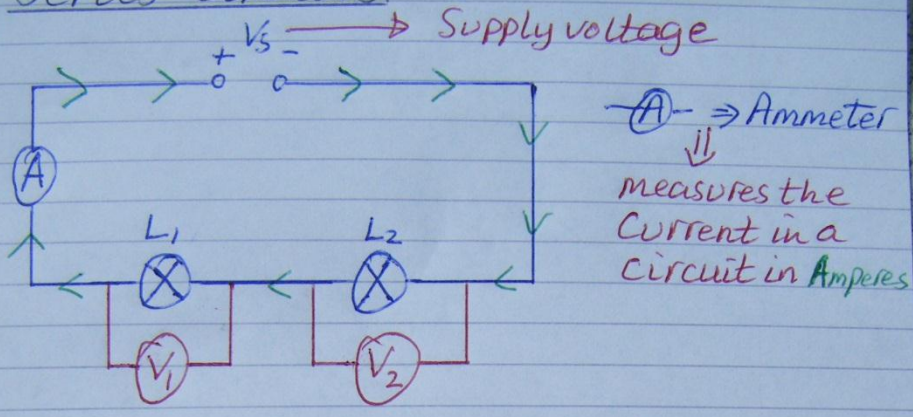 Vs → Supply voltage
+ -
A
-A- ⇒ Ammeter
⇓
measures the
Current in a
Circuit in Amperes
L1
L2
V1
V2